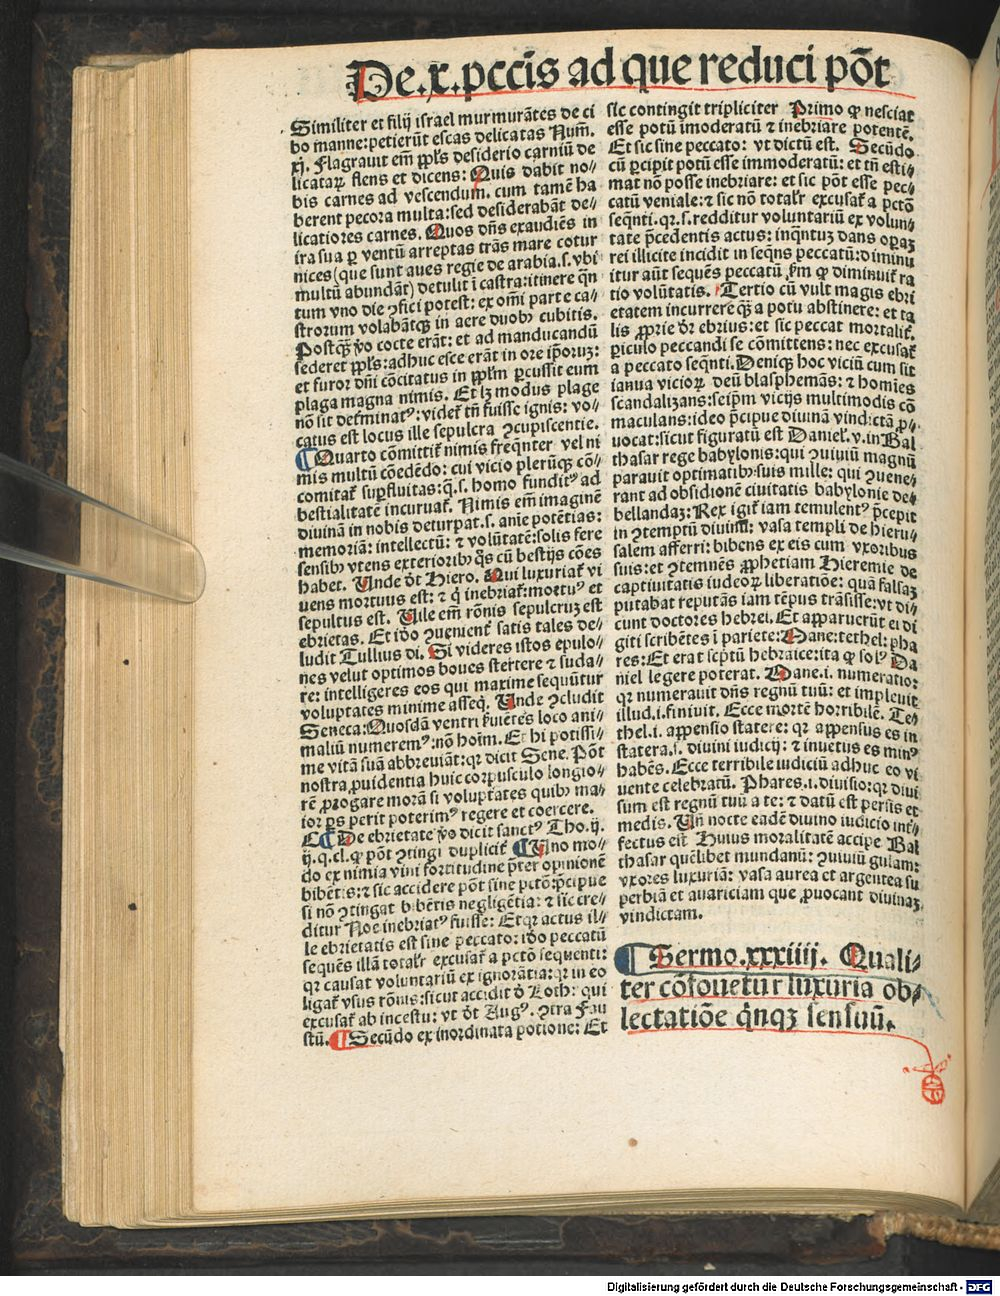 De.x.pccīs ad que reduci pōt
Similiter et filij israel murmurātes de ci
bo manne: petierūt escas delicatas Num̄.
xj. Flagrauit em̄ ppl̄s desiderio carniū de
licataꝝ flens et dicens: Quis dabit no⸗
bis carnes ad vescendum. cum tamē ha
berent pecora multa: sed desiderabāt de⸗
licatiores carnes. Quos dn̄s exaudiēs in
ira sua ꝑ ventū arreptas trās mare cotur
nices (que sunt aues regie de arabia.s. vbi
multū abundāt) detulit ī castra: itinere qn̄
tum vno die ꝯfici potest: ex om̄i parte ca⸗
strorum volabātqꝫ in aere duobꝰ cubitis.
Postqꝫ ṽo cocte erāt: et ad manducandū
sederet ppl̄s: adhuc esce erāt in ore ip̄oruꝫ:
et furor dn̄i cōcitatus in ppl̄m ꝑcussit eum
plaga magna nimis. Et lꝫ modus plage
nō sit determinatꝰ: videt᷑ tn̄ fuisse ignis: vo⸗
catus est locus ille sepulcra ꝯcupiscentie.
Quarto cōmittit᷑ nimis freqn̄ter vel ni
mis multū cōedēdo: cui vicio plerūqꝫ cō⸗
comitat᷑ suꝑfluitas: q̄.s. homo funditꝰ ad
bestialitatē incuruat᷑. Nimis em̄ imaginē
diuinā in nobis deturpat.s. anīe potētias:
memoriā: intellectū: ⁊ volūtatē: solis fere
sensibꝰ vtens exterioribꝰ qͦs cū bestijs cōes
habet. Unde d̄t Hiero. Qui luxuriat᷑ vi
uens mortuus est: ⁊ qͥ inebriat᷑: mortuꝰ et
sepultus est. Uile em̄ rōnis sepulcruꝫ est
ebrietas. Et iō ꝯuenient᷑ satis tales de⸗
ludit Tullius di. Si videres istos epulo⸗
nes velut optimos boues stertere ⁊ suda⸗
re: intelligeres eos qui maxime sequūtur
voluptates minime asseq̄. Unde ꝯcludit
Seneca: Quosdā ventri ẜuiētes loco ani⸗
maliū numeremꝰ: nō hoīm. Et hi potissi⸗
me vitā suā abbreuiāt: qꝛ dicit Sene. Pōt
nostra ꝓuidentia huic corpusculo longio⸗
rē ꝓrogare morā si voluptates quibꝰ ma⸗
ior ps perit poterimꝰ regere et coercere.
De ebrietate ṽo dicit sanctꝰ Tho.ij.
ij.q.cl. ꝙ pōt ꝯtingi duplicit᷑ Uno mo⸗
do ex nimia vini fortitudine p̄ter opinionē
bibētis: ⁊ sic accidere pōt sine pctō: p̄cipue
si nō ꝯtingat bibētis negligētia: ⁊ sic cre⸗
ditur Noe inebriatꝰ fuisse: Et qꝛ actus il⸗
le ebrietatis est sine peccato: iō peccatū
sequēs illā totalr̄ excusat᷑ a pctō sequenti:
qꝛ causat voluntariū ex ignorātia: qꝛ in eo
ligat᷑ vsus rōnis: sicut accidit d̄ Loth: qui
excusat᷑ ab incestu: vt d̄t Augꝰ. ꝯtra Fau
stū. Secūdo ex inordinata potione: Et
sic contingit tripliciter Primo ꝙ nesciat
esse potū imoderatū ⁊ inebriare potentē.
Et sic sine peccato: vt dictū est. Secūdo
cū ꝑcipit potū esse immoderatū: et tn̄ esti⸗
mat nō posse inebriare: et sic pōt esse pec⸗
catū veniale: ⁊ sic nō totalr̄ excusat᷑ a pctō
seqn̄ti.qꝛ.s. redditur voluntariū ex volun⸗
tate p̄cedentis actus: inqn̄tuꝫ dans oꝑaꝫ
rei illicite incidit in seqn̄s peccatū: diminu
itur aūt sequēs peccatū ẜm ꝙ diminuit᷑ ra
tio volūtatis. Tertio cū vult magis ebri
etatem incurrere qꝫ a potu abstinere: et ta
lis ꝓprie dr̄ ebrius: et sic peccat mortalit᷑.
ꝑiculo peccandi se cōmittens: nec excusat᷑
a peccato seqn̄ti. Deniqꝫ hoc viciū cum sit
ianua vicioꝝ deū blasphemās: ⁊ homīes
scandalizans: seip̄m vicijs multimodis cō
maculans: ideo p̄cipue diuinā vindictā ꝓ⸗
uocat: sicut figuratū est Danieł.v. in Bal
thasar rege babylonis: qui ꝯuiuiū magnū
parauit optimatibꝰ suis mille: qui ꝯuene⸗
rant ad obsidionē ciuitatis babylonie de⸗
bellandaꝫ: Rex igit᷑ iam temulentꝰ p̄cepit
in ꝯtemptū diuinū: vasa templi de hieru⸗
salem afferri: bibens ex eis cum vxoribus
suis: et ꝯtemnēs ꝓphetiam Hieremie de
captiuitatis iudeoꝝ liberatiōe: quā falsaꝫ
putabat reputās iam tēpus trāsisse: vt di⸗
cunt doctores hebrei. Et apparuerūt ei di
giti scribētes ī pariete: Mane: tethel: pha
res: Et erat sc̄ptū hebraice: ita ꝙ solꝰ Da
niel legere poterat. Mane.i. numeratio:
qꝛ numerauit dn̄s regnū tuū: et impleuit
illud.i. finiuit. Ecce mortē horribilē. Te⸗
thel.i. appensio statere: qꝛ appensus es in
statera.s. diuini iudicij: ⁊ inuetus es minꝰ
habēs. Ecce terribile iudiciū adhuc eo vi
uente celebratū. Phares.i. diuisio: qꝛ diui
sum est regnū tuū a te: ⁊ datū est persis et
medis. Un̄ nocte eadē diuino iudicio int᷑⸗
fectus est Huius moralitatē accipe Bal
thasar quēlibet mundanū: ꝯuiuiū gulam:
vxores luxuriā: vasa aurea et argentea su
perbiā et auariciam que ꝓuocant diuinaꝫ
vindictam.
Sermo.xxxiiij. Quali⸗
ter cōfouetur luxuria ob⸗
lectatiōe qͥnqꝫ sensuū.
Digitalisierung gefördert durch die Deutsche Forschungsgemeinschaft - DFG